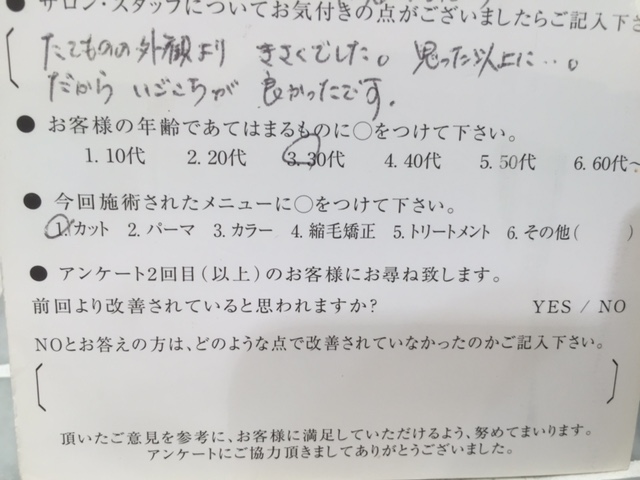 ● サロン・スタッフについてお気付きの点がございましたらご記入下さい
たてものの外観より きさくでした。 思った以上に…。
だから いごこちが 良かったです。
● お客様の年齢であてはまるものに○をつけて下さい。
1.10代 2.20代 3.30代 4.40代 5.50代 6.60代~
● 今回施術されたメニューに○をつけて下さい。
1.カット 2.パーマ 3.カラー 4.縮毛矯正 5.トリートメント 6.その他( )
● アンケート2回目(以上)のお客様にお尋ね致します。
前回より改善されていると思われますか? YES / NO
NOとお答えの方は、どのような点で改善されていなかったのかご記入下さい。
頂いたご意見を参考に、お客様に満足していただけるよう、努めてまいります。
アンケートにご協力頂きましてありがとうございました。